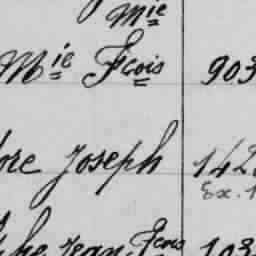 Mie
Mie Fcois 903
ore Joseph 142
Ex. 1
he Jean Fcois 103